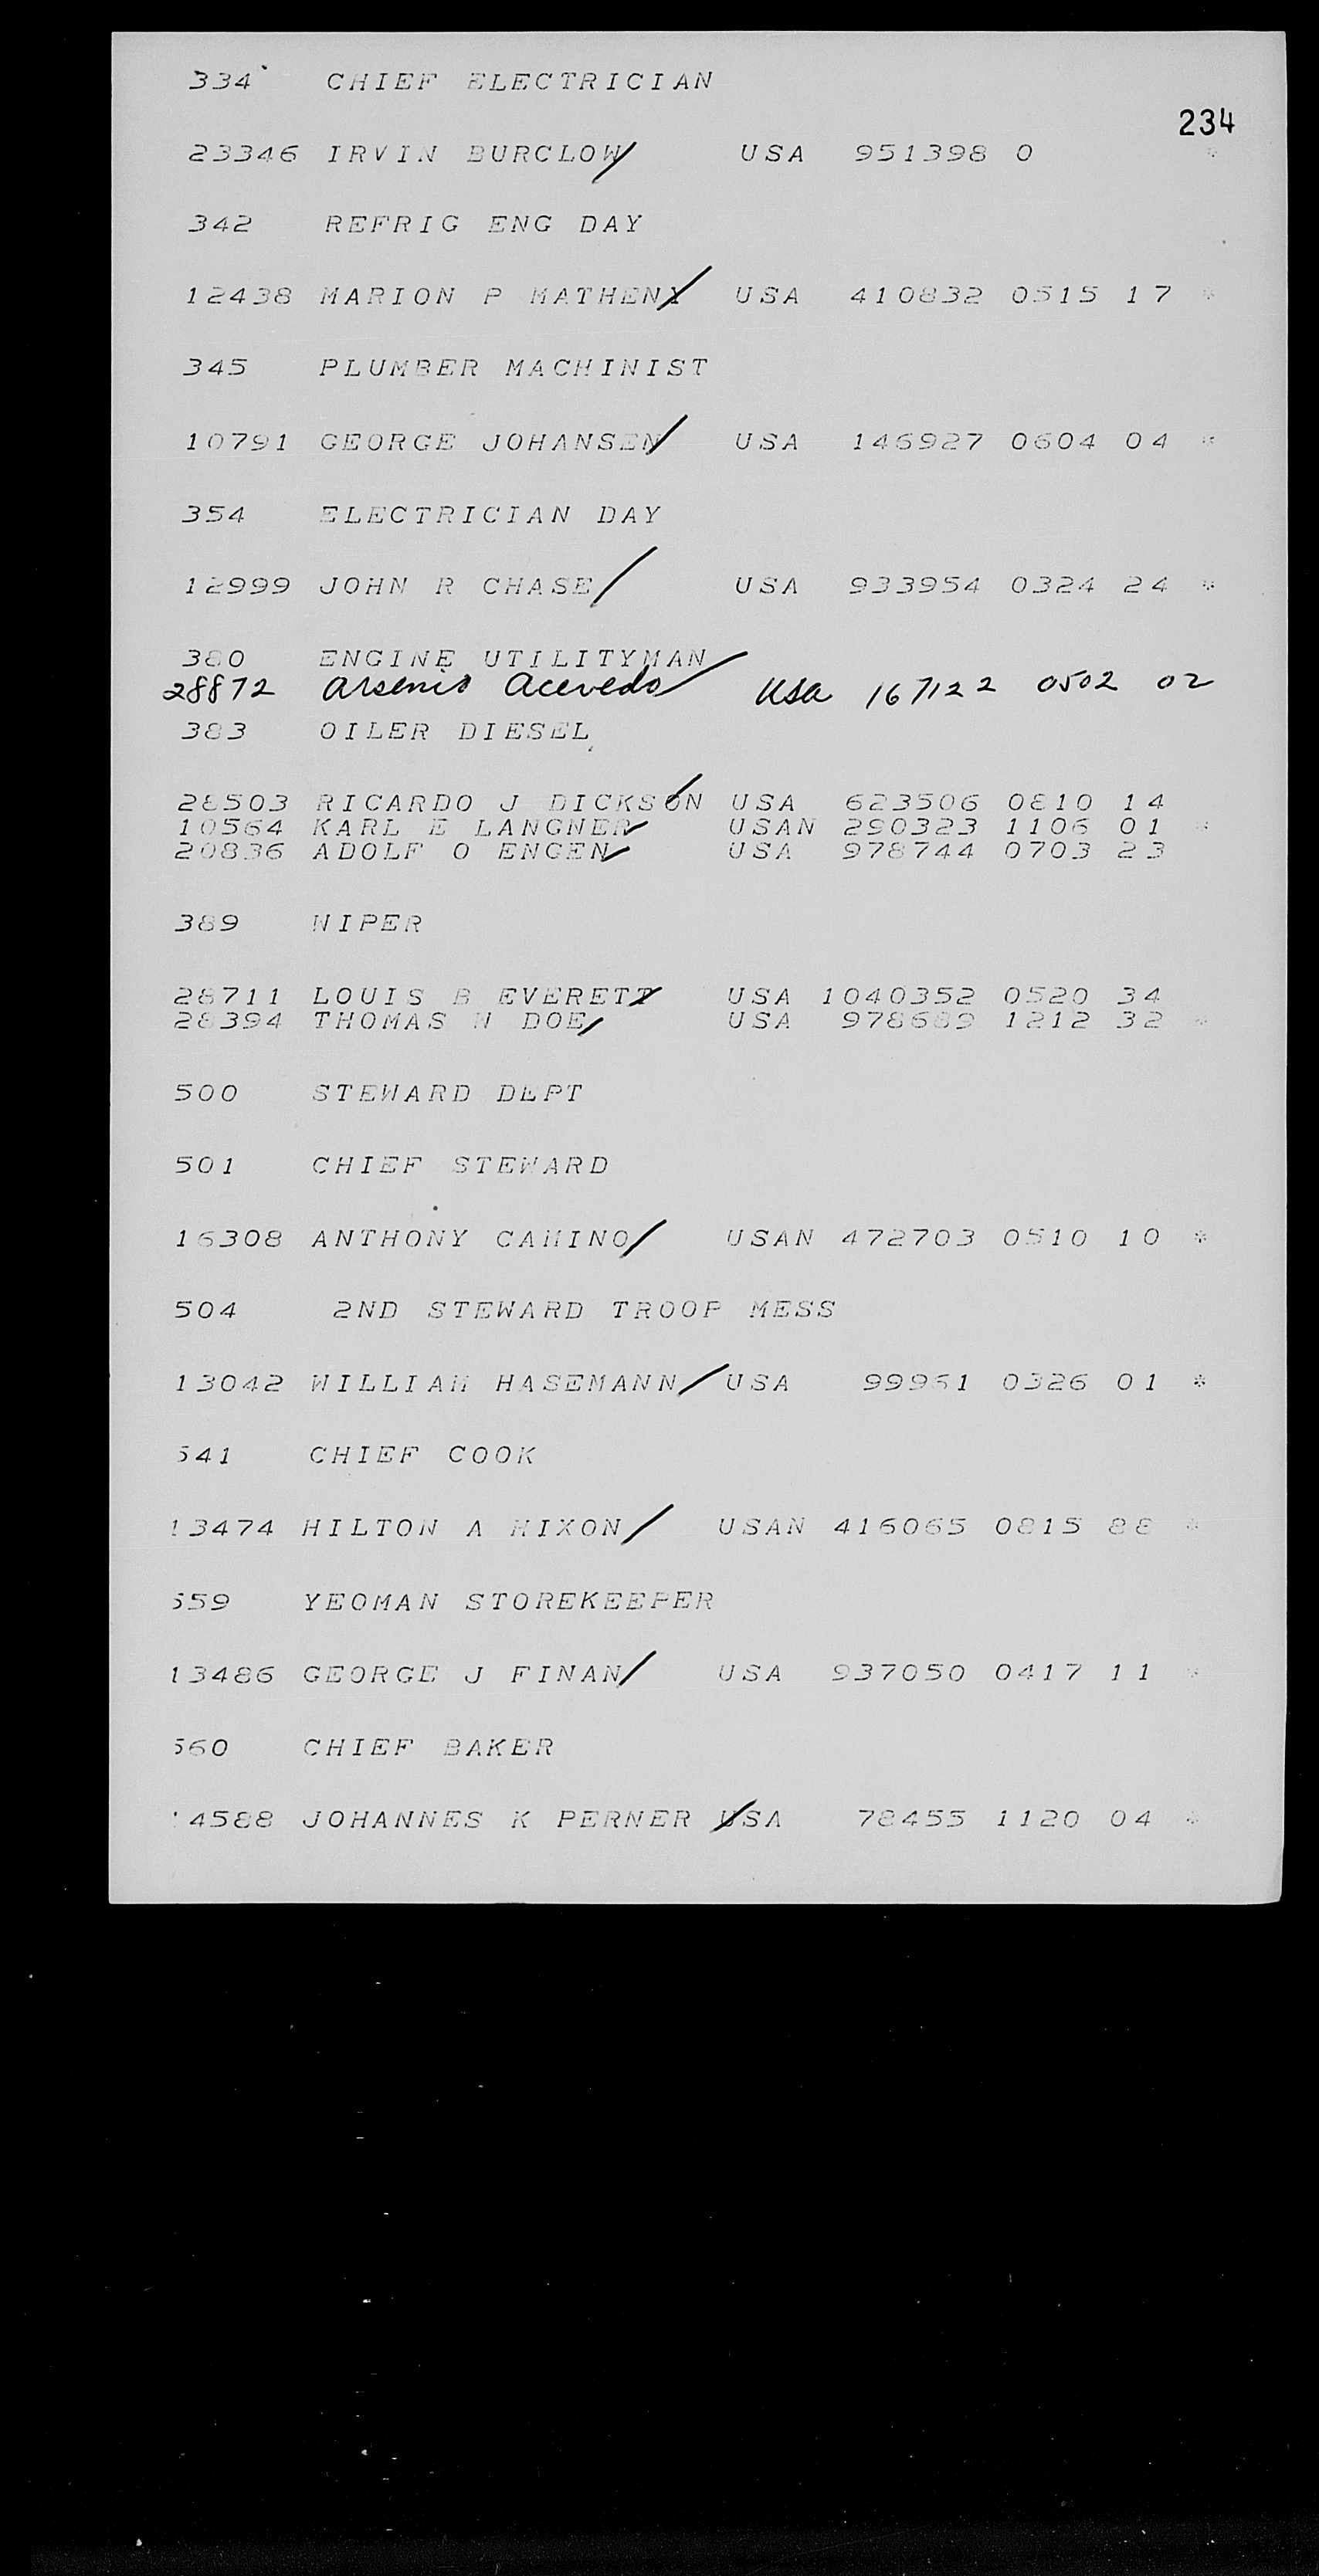 334 CHIEF ELECTRICIAN
234
23346 IRVIN BURCLOW USA 951398 0 *
342 REFRIG ENG DAY
12438 MARION P MATHENY USA 410832 0515 17 *
345 PLUMBER MACHINIST
10791 GEORGE JOHANSEN USA 146927 0604 04 *
354 ELECTRICIAN DAY
12999 JOHN R CHASE USA 933954 0324 24 *
380 ENGINE UTILITYMAN
28872 Arsenio Acevedo USA 167122 0502 02
383 OILER DIESEL
28503 RICARDO J DICKSON USA 623506 0810 14
10564 KARL E LANGNER USAN 290323 1106 01 *
20836 ADOLF O ENGEN USA 978744 0703 23
389 WIPER
28711 LOUIS B EVERETT USA 1040352 0520 34
28394 THOMAS W DOE USA 978689 1212 32 *
500 STEWARD DEPT
501 CHIEF STEWARD
16308 ANTHONY CAMINO USAN 472703 0510 10 *
504 2ND STEWARD TROOP MESS
13042 WILLIAM HASEMANN USA 99961 0326 01 *
541 CHIEF COOK
13474 HILTON A NIXON USAN 416065 0815 88 *
559 YEOMAN STOREKEEPER
13486 GEORGE J FINAN USA 937050 0417 11 *
560 CHIEF BAKER
4588 JOHANNES K PERNER USA 78455 1120 04 *